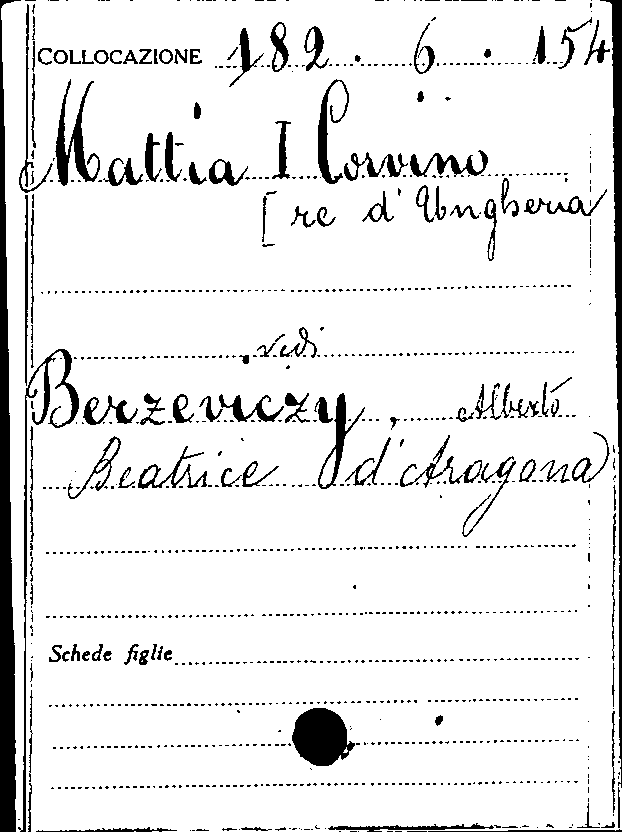 COLLOCAZIONE 182 . 6 . 154
Mattia I Corvino
[re d'Ungheria
vedi
Berzeviczy, Alberto
Beatrice d'Aragona
Schede figlie